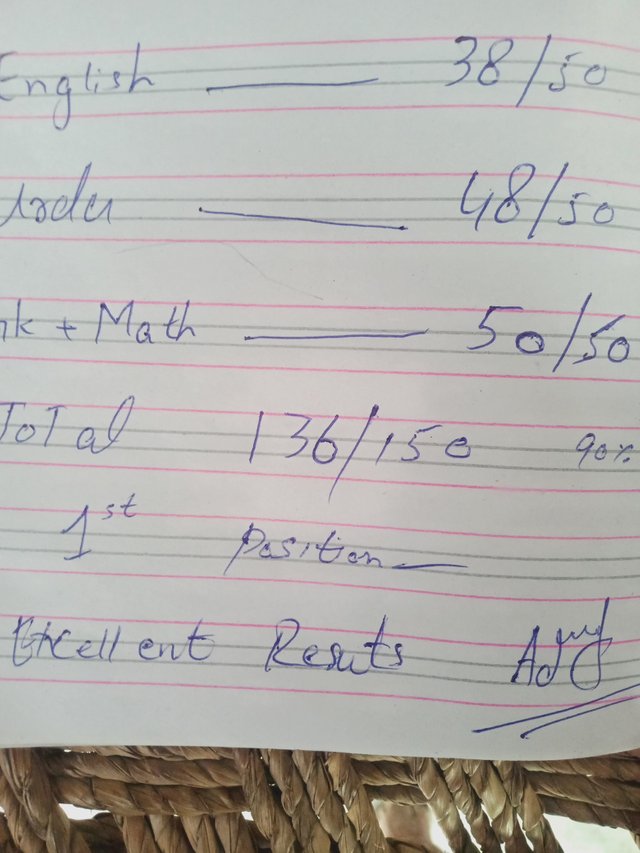 English —— 38/50
Urdu —— 48/50
nk + Math —— 50/50
ToTal 136/150 90%
1st Position —
Excellent Resuts